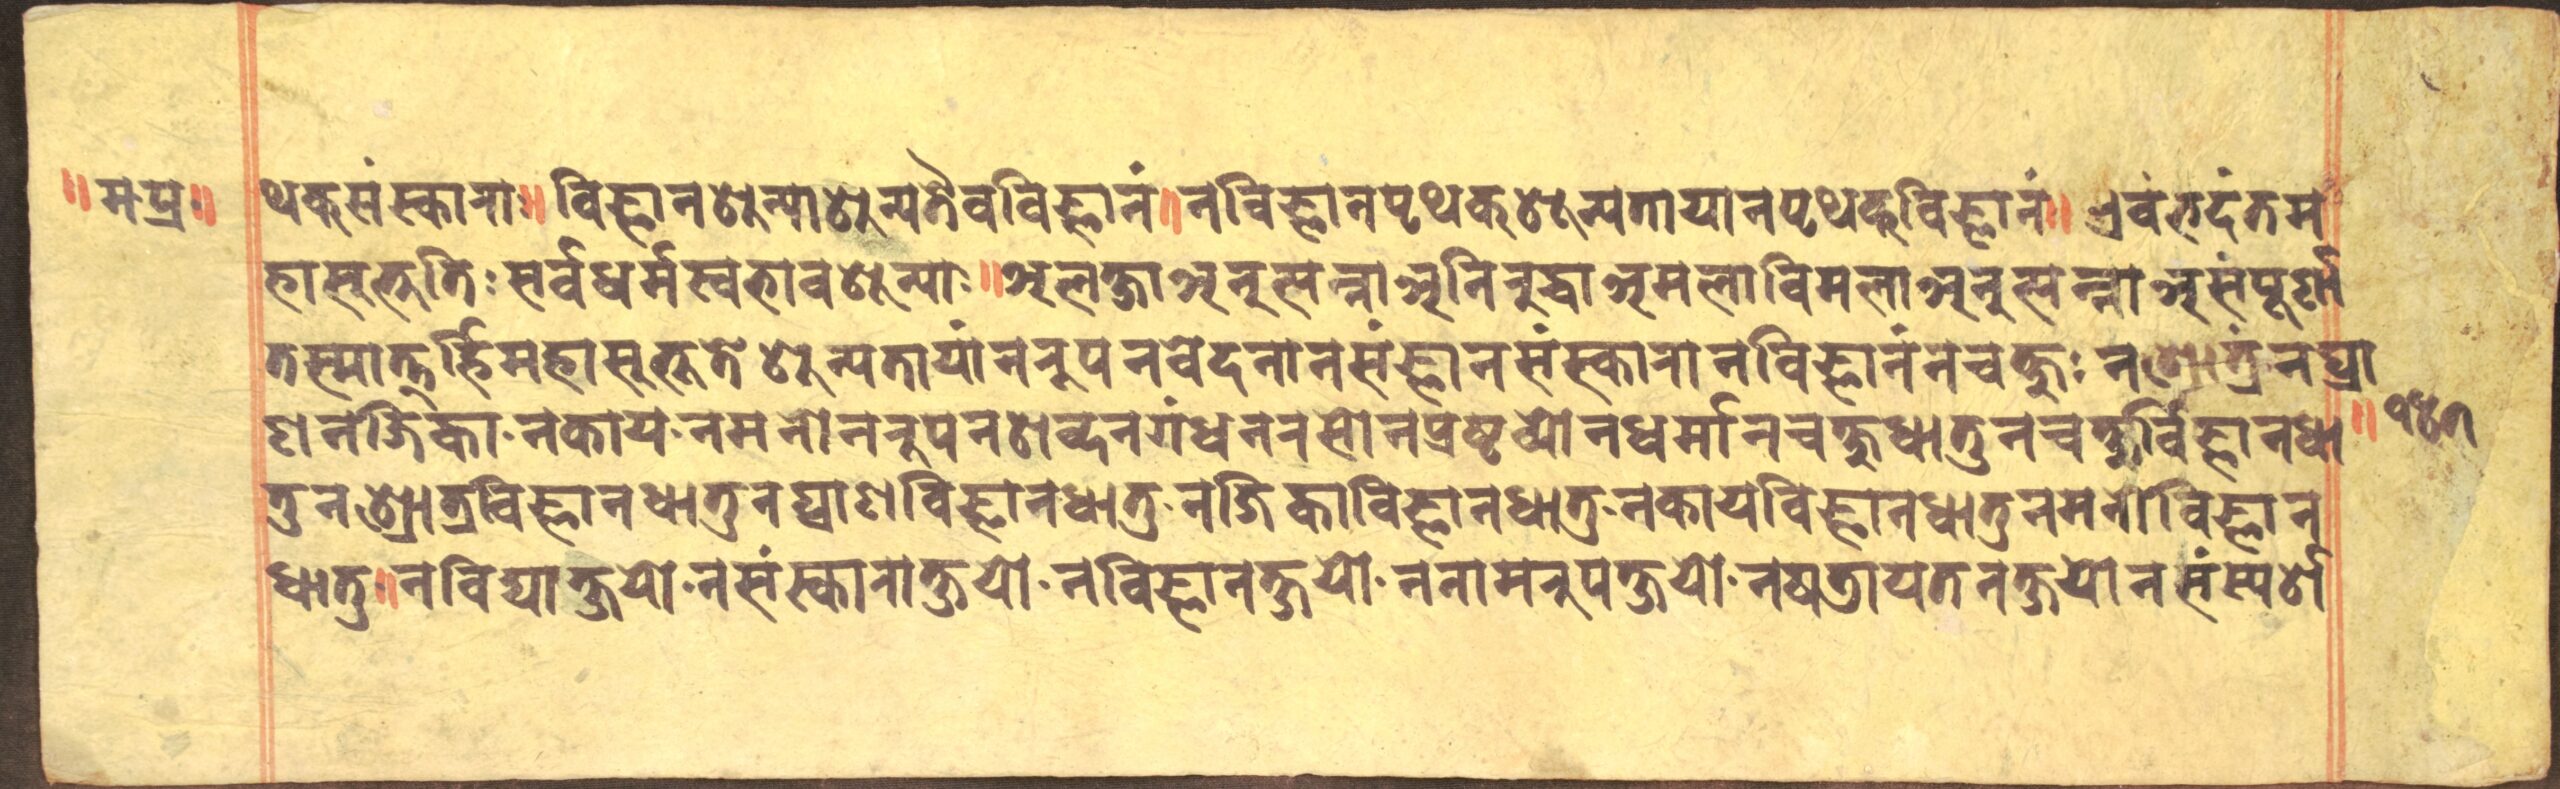 ॥मप्र॥ थक्संस्काराः॥ विज्ञानशुन्याशुन्यतैवविज्ञानं। नविज्ञानपृथक्शुन्यतायानपृथक्विज्ञानं॥ एवंभदंतम
हासुभुतिः सर्वधर्मस्वभावशुन्याः॥ अलक्षाअनुत्पन्नाअनिरुद्धाअमलाविमलाअनुत्पन्नाअसंपूर्णा
तस्मात्तर्हिमहासुभुते शुन्यतायांनरुपनवेदनानसंज्ञानसंस्कारानविज्ञानंनचक्षुः नश्रोत्रंनघ्रा
णनजिका·नकाय·नमनोनरुपनशब्दनगंधनरसोनप्रष्टव्योनधर्मानचक्षुधातुनचक्षुर्विज्ञानधा ॥ १४७
तुनश्रोत्रविज्ञानधातुनघ्राणविज्ञानधातु·नजिकाविज्ञानधातु·नकायविज्ञानधातुनमनोविज्ञान
धातु॥ नविद्याक्षयो·नसंस्काराक्षयो·नविज्ञानक्षयो·ननामरुपक्षयो·नषडायतनक्षयोनसंस्पर्शो